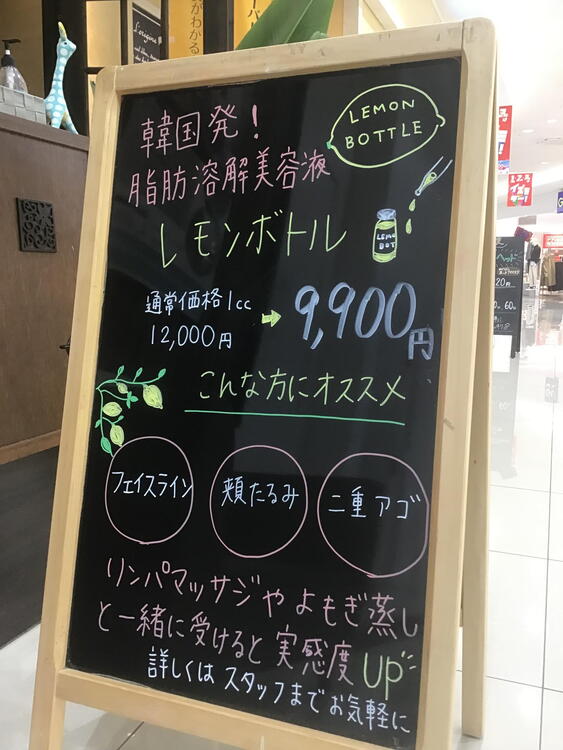 韓国発!
脂肪溶解美容液
レモンボトル
LEMON
BOTTLE
LEMO
BOT
通常価格1cc
12,000円
9,900円
こんな方にオススメ
フェイスライン
頬たるみ
二重アゴ
リンパマッサジやよもぎ蒸し
と一緒に受けると実感度UP
詳しくはスタッフまでお気軽に
がわかる